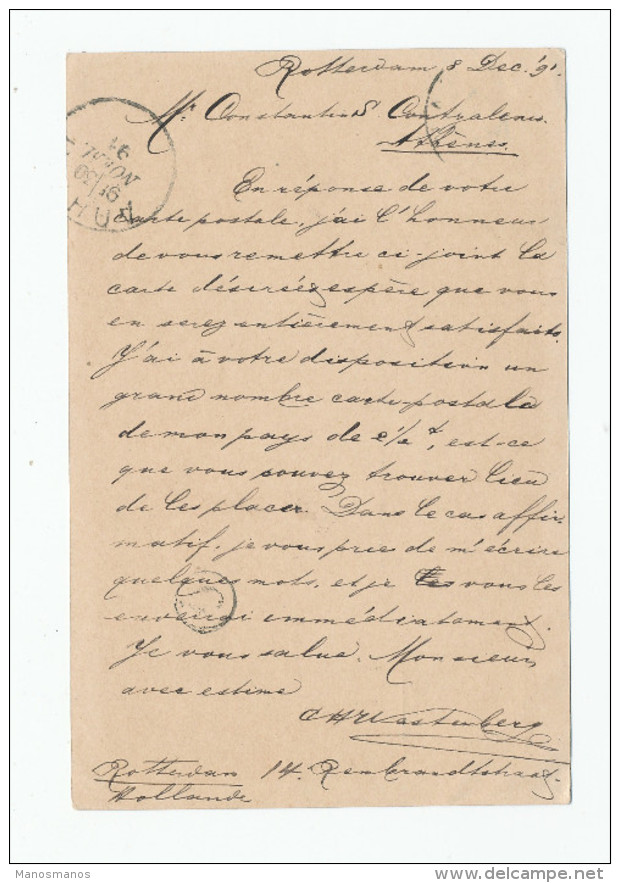 Rotterdam 8 Dec. '91.
Mr. Constantin S
Athènes.
En réponse de votre
carte postale, j'ai l'honneur
de vous remettre ci-joint la
carte désirée, espère que vous
en serez entièrement satisfaits.
J'ai à votre disposition un
grand nombre carte-postale
de mon pays de , est-ce
que vous pouvez trouver lieu
de les placer. Dans le cas affir-
matif, je vous prie de m'écrire
quelques mots, et je vous les
enverrai immédiatement.
Je vous salue. Monsieur
avec estime
Westenberg
Rotterdam 14. Rembrandtstraat
Hollande
Manosmanos
delcampe.net